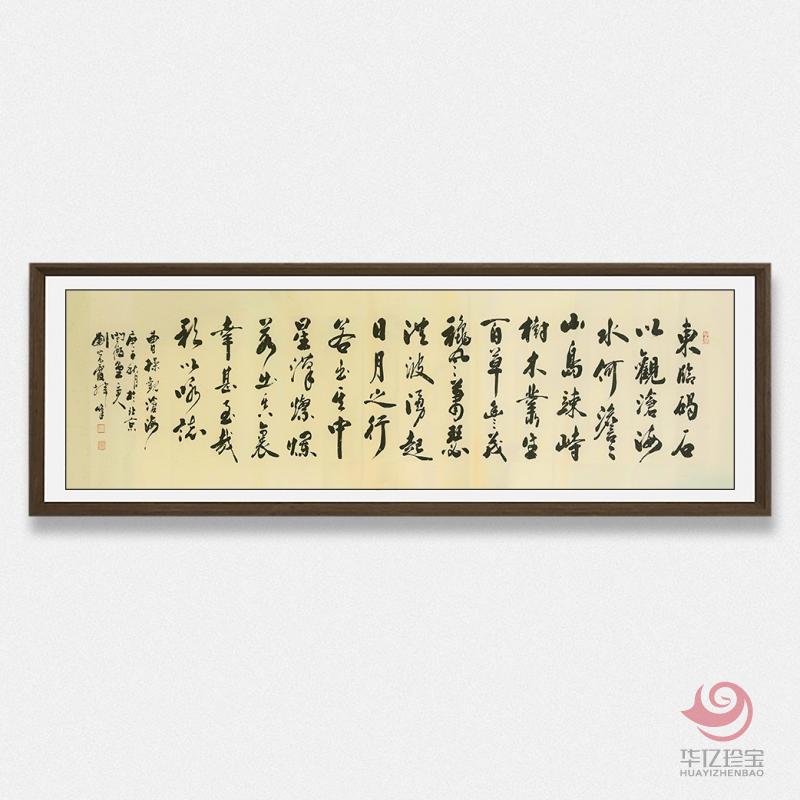 東臨碣石
以觀滄海
水何澹〻
山島竦峙
樹木叢生
百草豐茂
穐風蕭瑟
洪波湧起
日月之行
若出其中
星漢燦爛
若出其裏
幸甚至哉
歌以咏誌
曹操觀滄海
庚子秋月於北京
华亿珍宝
HUAYIZHENBAO